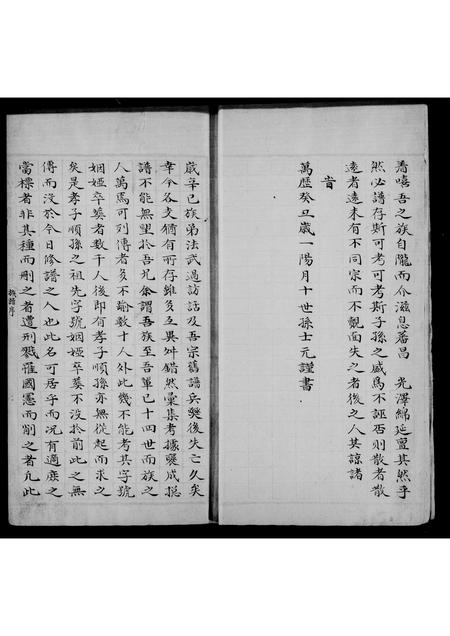 耆嘻吾之族自隴而介滋息蕃昌 光澤綿延亶其然乎
然必譜存斯可考可考斯子孫之威焉不誣否則散者散
遠者遠末有不同宗而不覿面失之者後之人其諒諸
旹
萬歷癸丑歲一陽月十世孫士元謹書
歲辛巳族弟法武過訪話及吾宗舊譜兵燹後失亡久矣
幸今各支猶有所存雖多互異舛錯然彙集考據襄成挺
譜不能無望於吾兄余謂吾族至吾軍已十四世而族之
人萬馬可列傳者多不踰數十人外此幾不能考其字號
姻婭卒葵者數千人後即有孝子順孫亦無從起而求之
矣是孝子順孫之祖先字號姻婭卒葵不沒於前此之無
傳而沒於今日修譜之人也此名可居乎而況有適庶之
當標者非其種而刪之者遭刑戮罹國憲而削之者凡此
族譜序